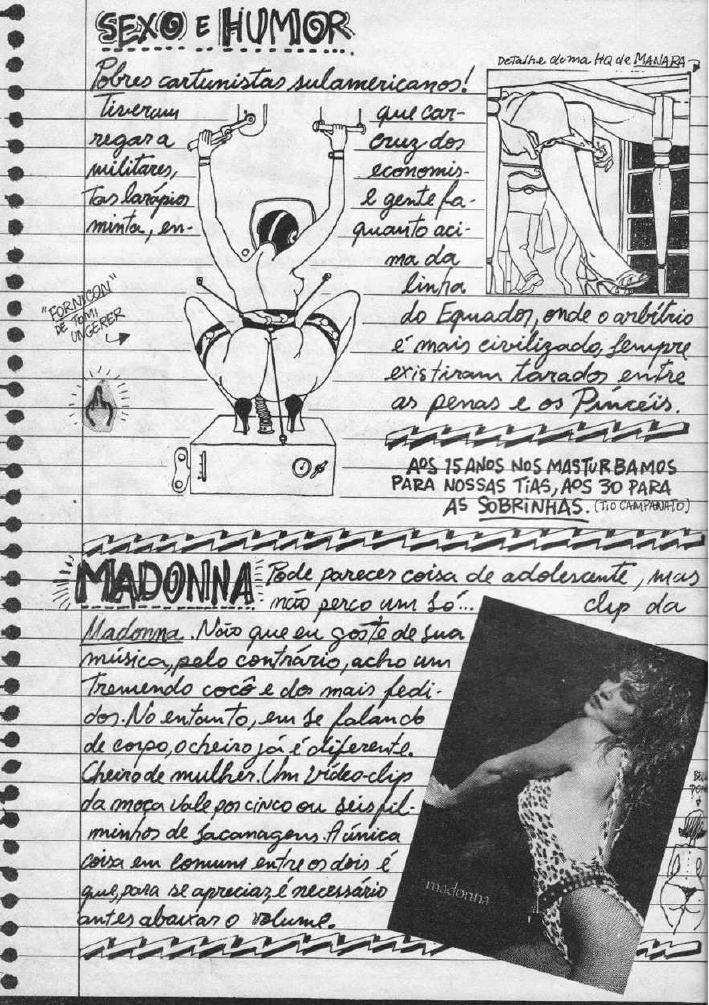 SEXO E HUMOR
Detalhe de uma HQ de MANARA
Pobres cartunistas sulamericanos!
Tiveram que car-
regar a cruz dos
militares, economis-
tas larápios e gente fa-
minta, en- quanto aci-
ma da
linha
do Equador, onde o arbítrio
é mais civilizado, sempre
existiram tarados entre
as penas e os Pincéis.
"FORNICON"
DE TOMI
UNGERER
AOS 15 ANOS NOS MASTURBAMOS
PARA NOSSAS TIAS, AOS 30 PARA
AS SOBRINHAS. (TIO CAMPANATO)
MADONNA Pode parecer coisa de adolescente, mas
não perco um só... clip da
Madonna. Não que eu goste de sua
música, pelo contrário, acho um
tremendo cocô e dos mais fedi-
dos. No entanto, em se falando
de corpo, o cheiro já é diferente.
Cheiro de mulher. Um vídeo-clip
da moça vale por cinco ou seis fil-
minhos de sacanagens. A única
coisa em comum entre os dois é
que, para se apreciar, é necessário
antes abaixar o volume.
madonna